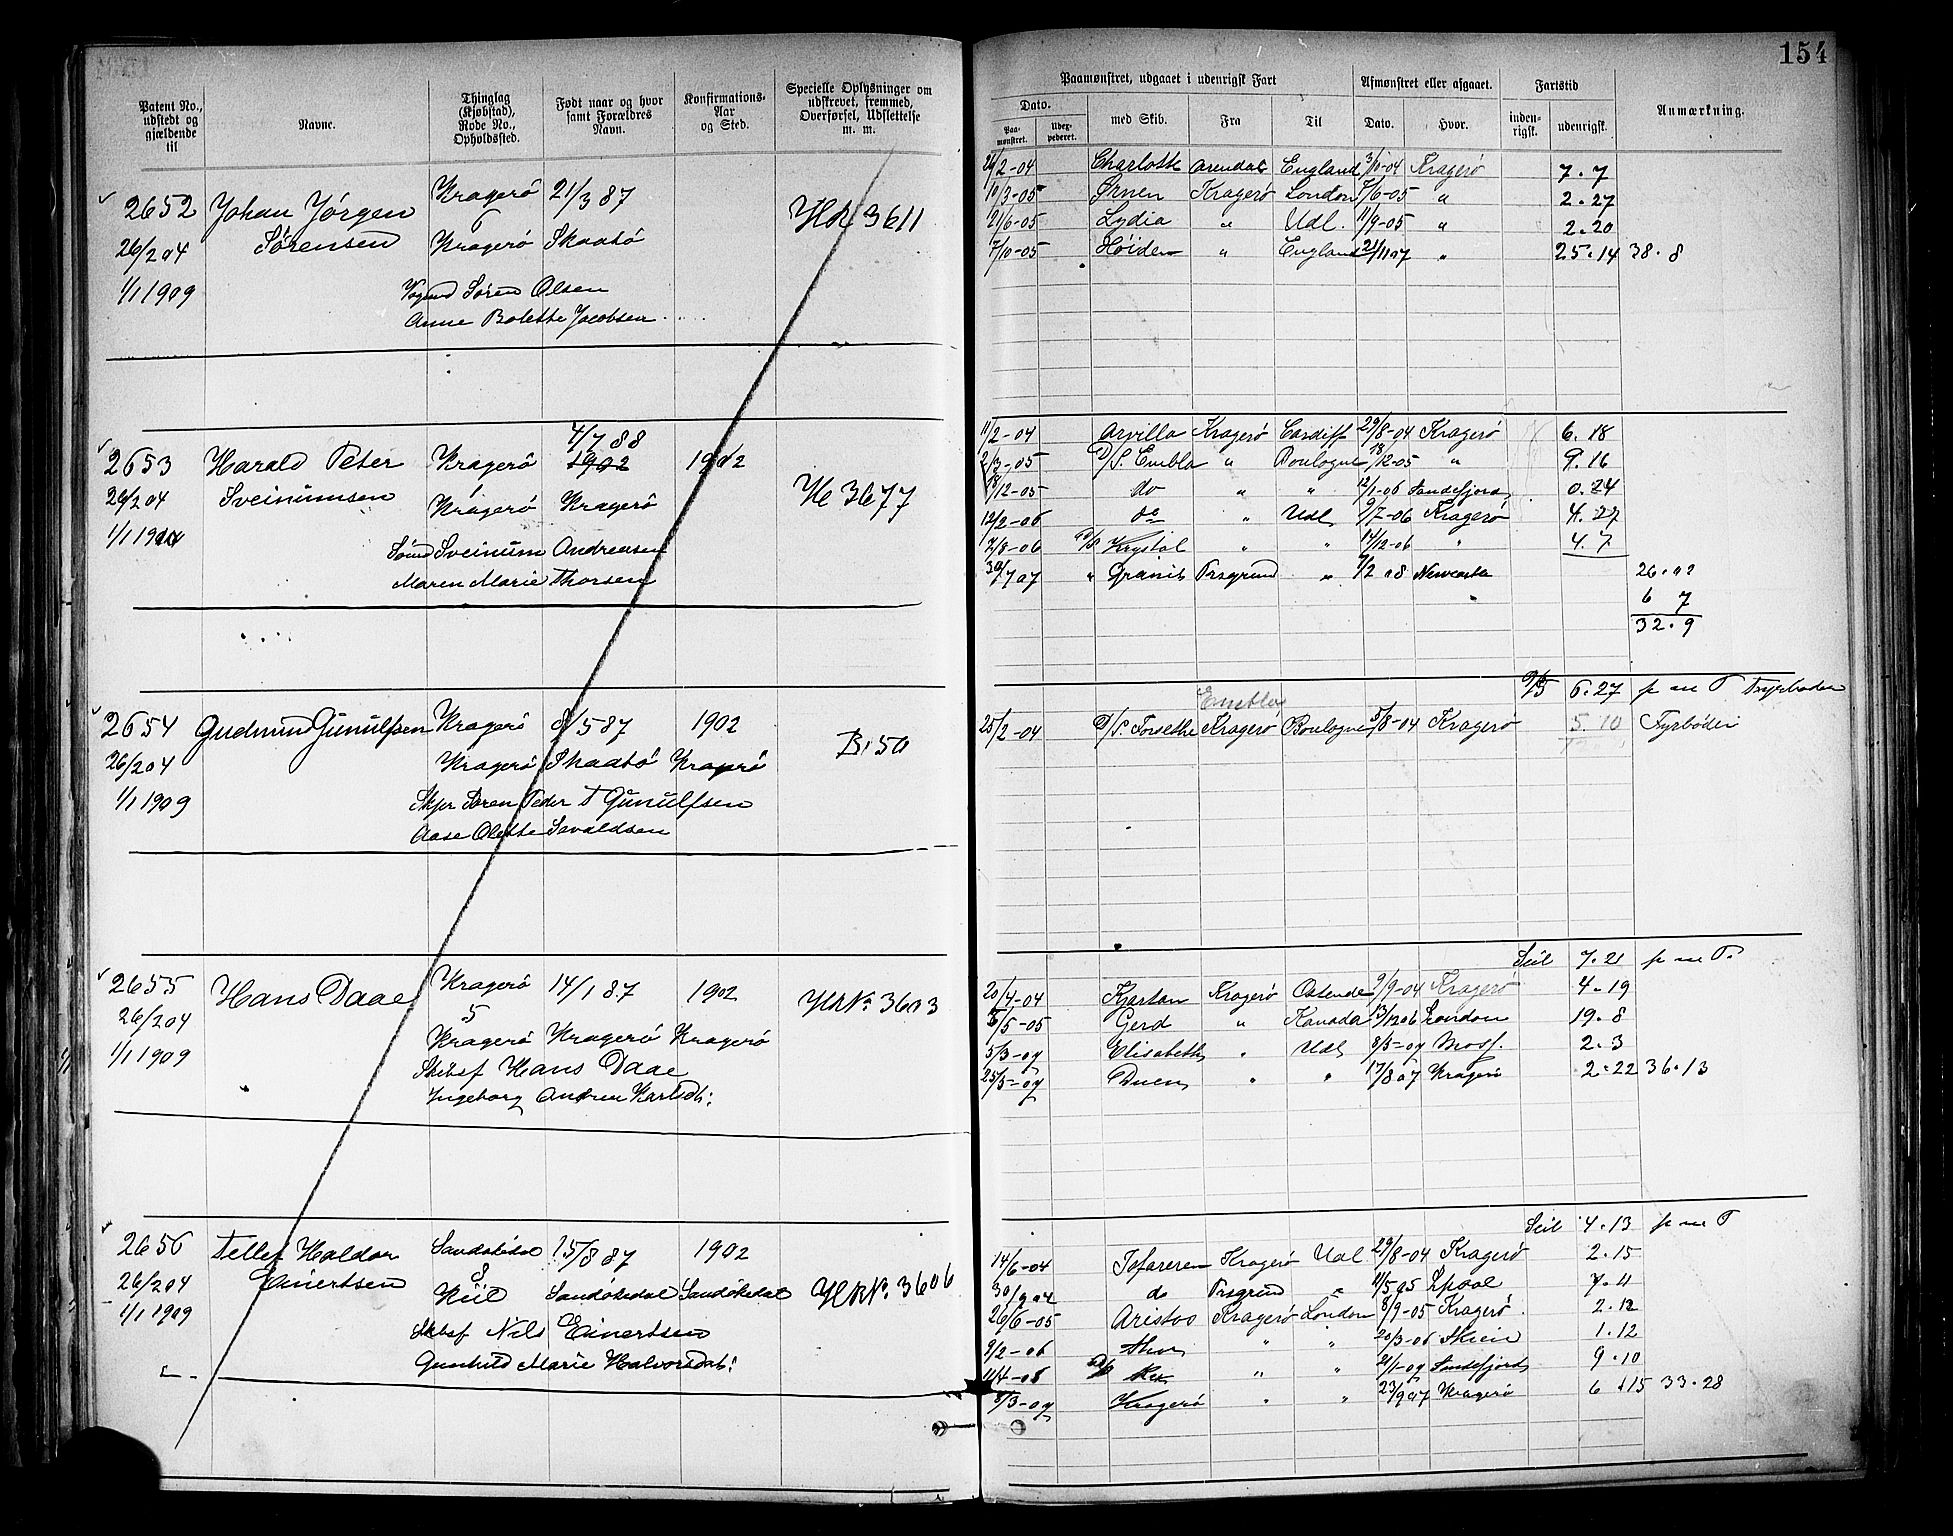 154
Patent No., udstedt og gjældende til
Navne.
Thinglag (Kjøbstad), Rode No., Opholdssted.
Født naar og hvor samt Forældres Navn.
Konfirmations-Aar og Sted.
Specielle Oplysninger om udskrevet, fremmed, Overførsel, Udslettelse m. m.
Paamønstret, udgaaet i udenrigsk Fart
Afmønstret eller afgaaet.
Fartstid
Anmærkning.
Dato.
Paa-mønstret.
med Skib.
Fra
Til
Dato.
Hvor.
inden-rigsk.
udenrigsk.
2652 Johan Jörgen Kragerö 21/3 87
Sörensen 6
26/2 04 Kragerö Skaatö
1/1 1909 Sören Olsen
Anne Bolette Jacobsen
3611
26/2-04 Charlotte Arendal England 3/10-04 Kragerö 7.7
10/3-05 Ørnen Kragerö London 7/6-05 " 2.27
21/6-05 Lydia " Udl. 11/9-05 " 2.20
7/10-05 Höiden " England 21/11 07 " 25.14 38.8
2653 Harald Peter Kragerö 4/7 88 1902 1902
26/2 04 Sveinumsen Kragerö Kragerö
1/1 1910
Sveinum Andreasen
Maren Marie Thorsen
3677
11/2-04 Arvilla Kragerö Cardiff 29/8-04 Kragerö 6.18
2/3-05 D/S. Embla " Boulogne 18/12-05 " 9.16
18/12-05 do " " 12/1-06 Sandefjord 0.24
12/2-06 do " Udl 9/7-06 Kragerö 4.27
7/8-06 Krystal " " 14/12-06 " 4.7
30/7 07 " Granit Prsgrund " 7/2 08 Newcastle 26.02
6 7
32.9
2654 Gudmund Gunulfsen Kragerö 8/5 87 1902
26/2 04 Kragerö Skaatö Kragerö
1/1 1909 Skpr Sören Peder T Gunulfsen
Aase Olette Savaldsen
B. 50
6.27
Embla
25/2-04 D/S. Forsethe Kragerö Boulogne 5/8-04 Kragerö 5.10 Fyrböder
2655 Hans Daae Kragerö 14/1 87 1902
26/2 04 5
Kragerö Kragerö Kragerö
1/1 1909 Skibsf Hans Daae
Ingeborg Andrea Karlsdt:
3603
Seil 7.21
20/4-04 Kjartan Kragerö Ostende 9/9-04 Kragerö 4.19
5/5-05 Gerd " Kanada 13/12 06 London 19.8
5/3-07 Elisabeth " Udl 8/5-07 Moss. 2.3
25/5-07 Duen " " 17/8 07 Kragerö 2.22 36.13
2656 Tellef Haldor Sandökedal 15/8 87 1902
26/2 04 Einertsen 8
Kiil Sandökedal Sandökedal
1/1 1909 Skibsf Nils Einertsen
Gunhild Marie Halvorsdat:
3606
Seil 4.13
14/6-04 Isfareren Kragerö Udl 29/8-04 Kragerö 2.15
30/9 04 do Prsgrund " 11/5 05 Lpool 7.11
26/6-05 Aristos Kragerö London 8/9-05 Kragerö 2.12
9/2-06 " " 20/3-06 Skien 1.12
11/4-06 Rex " " 21/1-07 Sandefjord 9.10
8/3-07 Kragerö " " 23/9 07 Kragerö 6.15 33.28